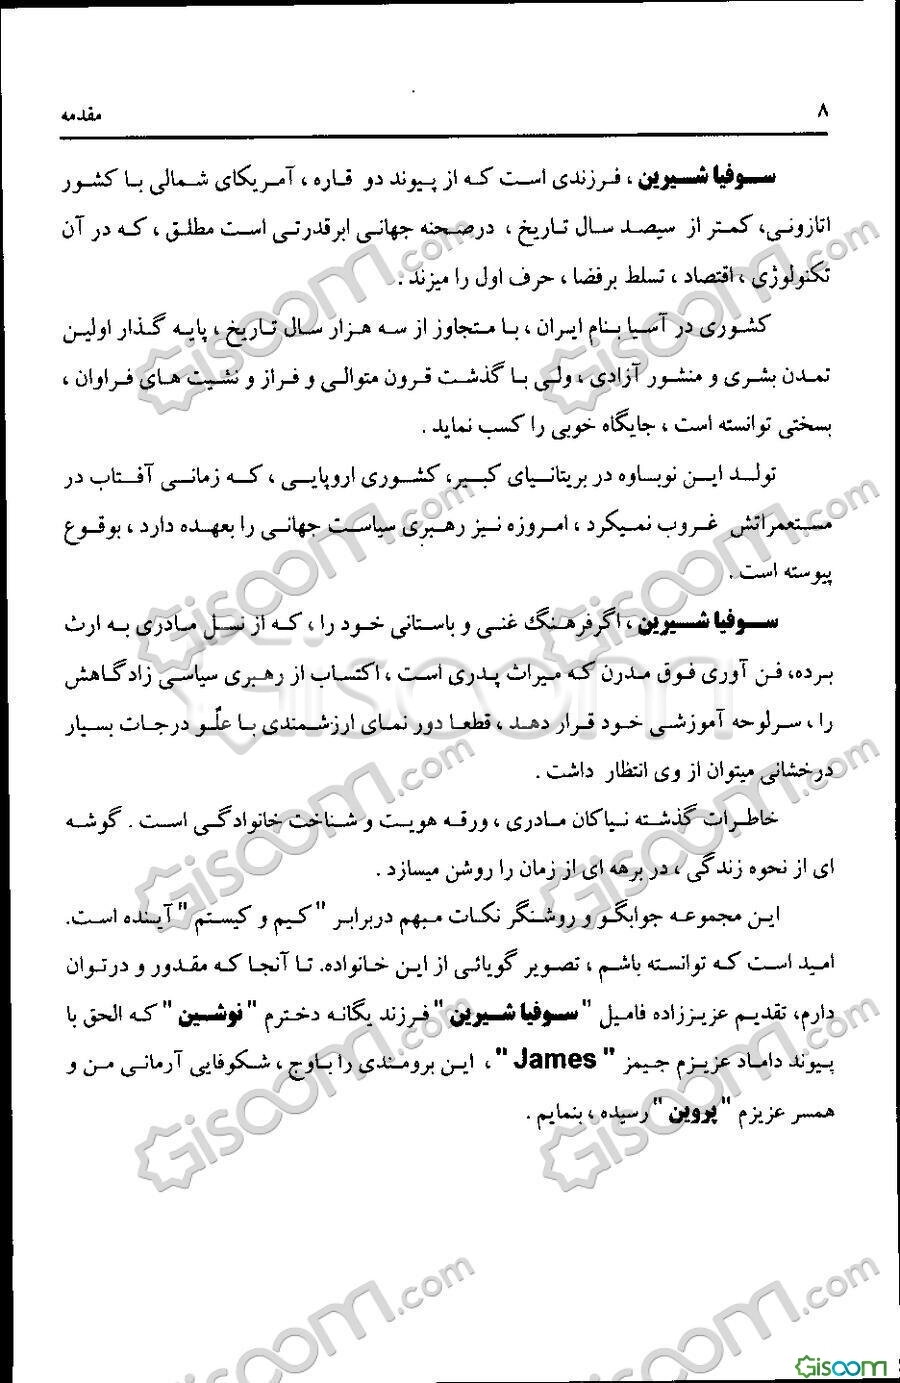 ۸
مقدمه
سوفیا شیرین ، فرزندی است که از پیوند دو قاره ، آمریکای شمالی با کشور
اتازونی، کمتر از سیصد سال تاریخ ، درصحنه جهانی ابرقدرتی است مطلق ، که در آن
تکنولوژی ، اقتصاد ، تسلط برفضا ، حرف اول را میزند .
کشوری در آسیا بنام ایران ، با متجاوز از سه هزار سال تاریخ ، پایه گذار اولین
تمدن بشری و منشور آزادی ، ولی با گذشت قرون متوالی و فراز و نشیت های فراوان ،
بسختی توانسته است ، جایگاه خوبی را کسب نماید .
تولد این نوباوه در بریتانیای کبیر، کشوری اروپایی ، که زمانی آفتاب در
مستعمراتش غروب نمیکرد ، امروزه نیز رهبری سیاست جهانی را بعهده دارد ، بوقوع
پیوسته است .
سوفیا شیرین ، اگرفرهنگ غنی و باستانی خود را ، که از نسل مادری به ارث
برده، فن آوری فوق مدرن که میراث پدری است ، اکتساب از رهبری سیاسی زادگاهش
را ، سرلوحه آموزشی خود قرار دهد ، قطعا دور نمای ارزشمندی با علّو درجات بسیار
درخشانی میتوان از وی انتظار داشت .
خاطرات گذشته نیاکان مادری ، ورقه هویت و شناخت خانوادگی است . گوشه
ای از نحوه زندگی ، در برهه ای از زمان را روشن میسازد .
این مجموعه جوابگو و روشنگر نکات مبهم دربرابر " کیم و کیستم " آینده است.
امید است که توانسته باشم ، تصویر گویائی از این خانواده. تا آنجا که مقدور و درتوان
دارم، تقدیم عزیززاده فامیل " سوفیا شیرین" فرزند یگانه دخترم "نوشین " که الحق با
پیوند داماد عزیزم جیمز " James " ، این برومندی را باوج ، شکوفایی آرمانی من و
همسر عزیزم " پروین " رسیده ، بنمایم .
Giscoom.com
Giscoom.com
Giscoom.com
Giscoom.com
Giscoom.com
Giscoom.com
Giscoom
Giscoom.com
Giscoom.com
Giscoom.com
Giscoom.com
Giscoom.com
Giscoom.com
Giscoom